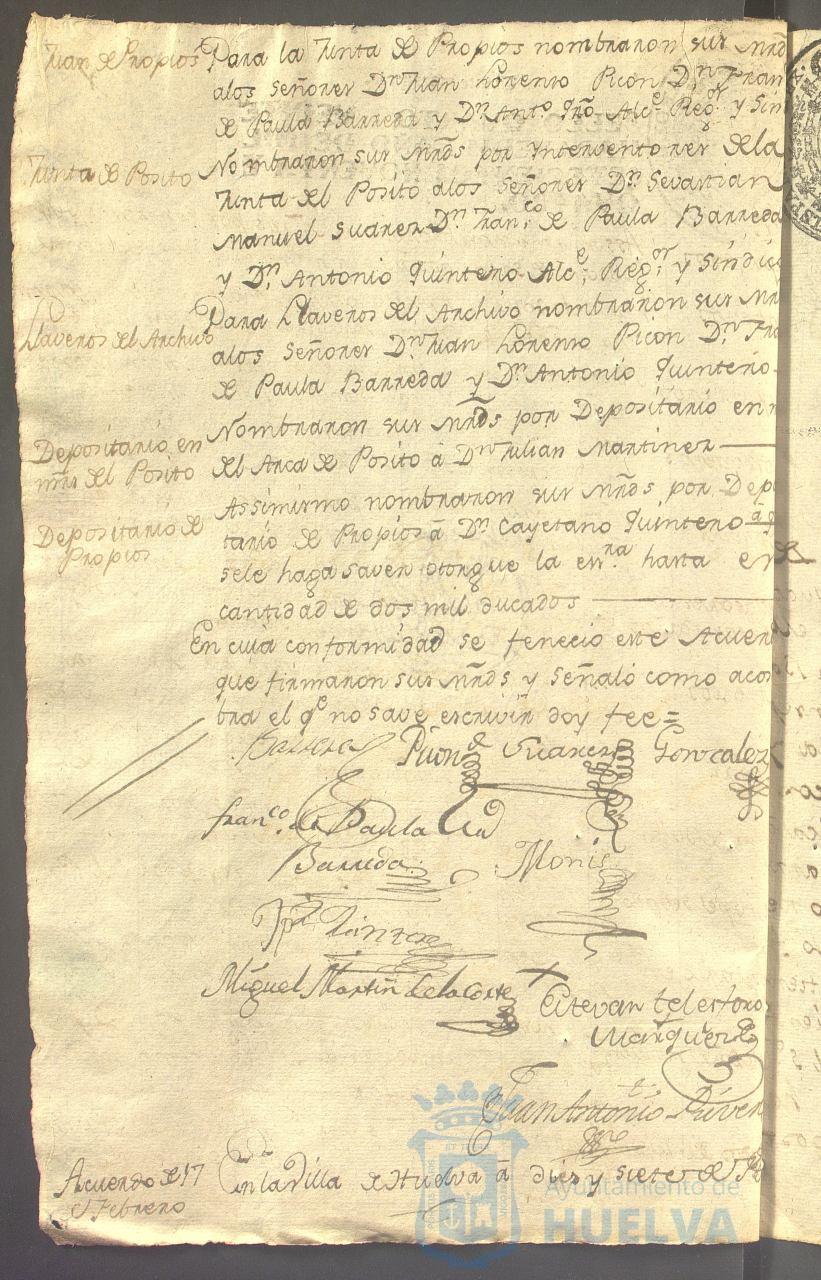 Jun de Propios
Para la Junta de Propios nombraron sus Mrds
alos Señores Dn Juan Lorenzo Picon Dn Fran
de Paula Barreda y Dn Anto Qro Alce Regor y Sin
Junta de Posito
Nombraron sus Mrds por Yntervento res dela
Junta del Posito alos Señores Dn Sevastian
Manuel Suarez Dn Franco de Paula Barreda
y Dn Antonio Quintero Alce Regor y Sindic
Llaveros del Archivo
Para Llaveros del Archivo nombraron sus Mr
alos Señores Dn Juan Lorenzo Picon Dn Fra
de Paula Barreda y Dn Antonio Quintero
Depositario en
mrs del Posito
Nombraron sus Mrds por Depositario en m
del Arca de Posito â Dn Julian Martinez
Depositario de
Propios
Assimismo nombraron sus Mrds por Depo
tario de Propios â Dn Cayetano Quintero â q
sele haga saver otorgue la essra hasta en
cantidad de dos mil ducados
En cuia conformidad se feneciò este Acuer
que firmaron sus Mrds y señalò como acos
bra el qe no save escrivir doy fee =
Barrera Picon Suarez Gonzalez
Franco de Paula
Barreda Monis
Miguel Martin de la Corte
Estevan telesforo
Marquez
Juan Antonio
Acuerdo de 17
d Febrero
En la Villa de Huelva â diez y siete de
Ayuntamiento de
HUELVA